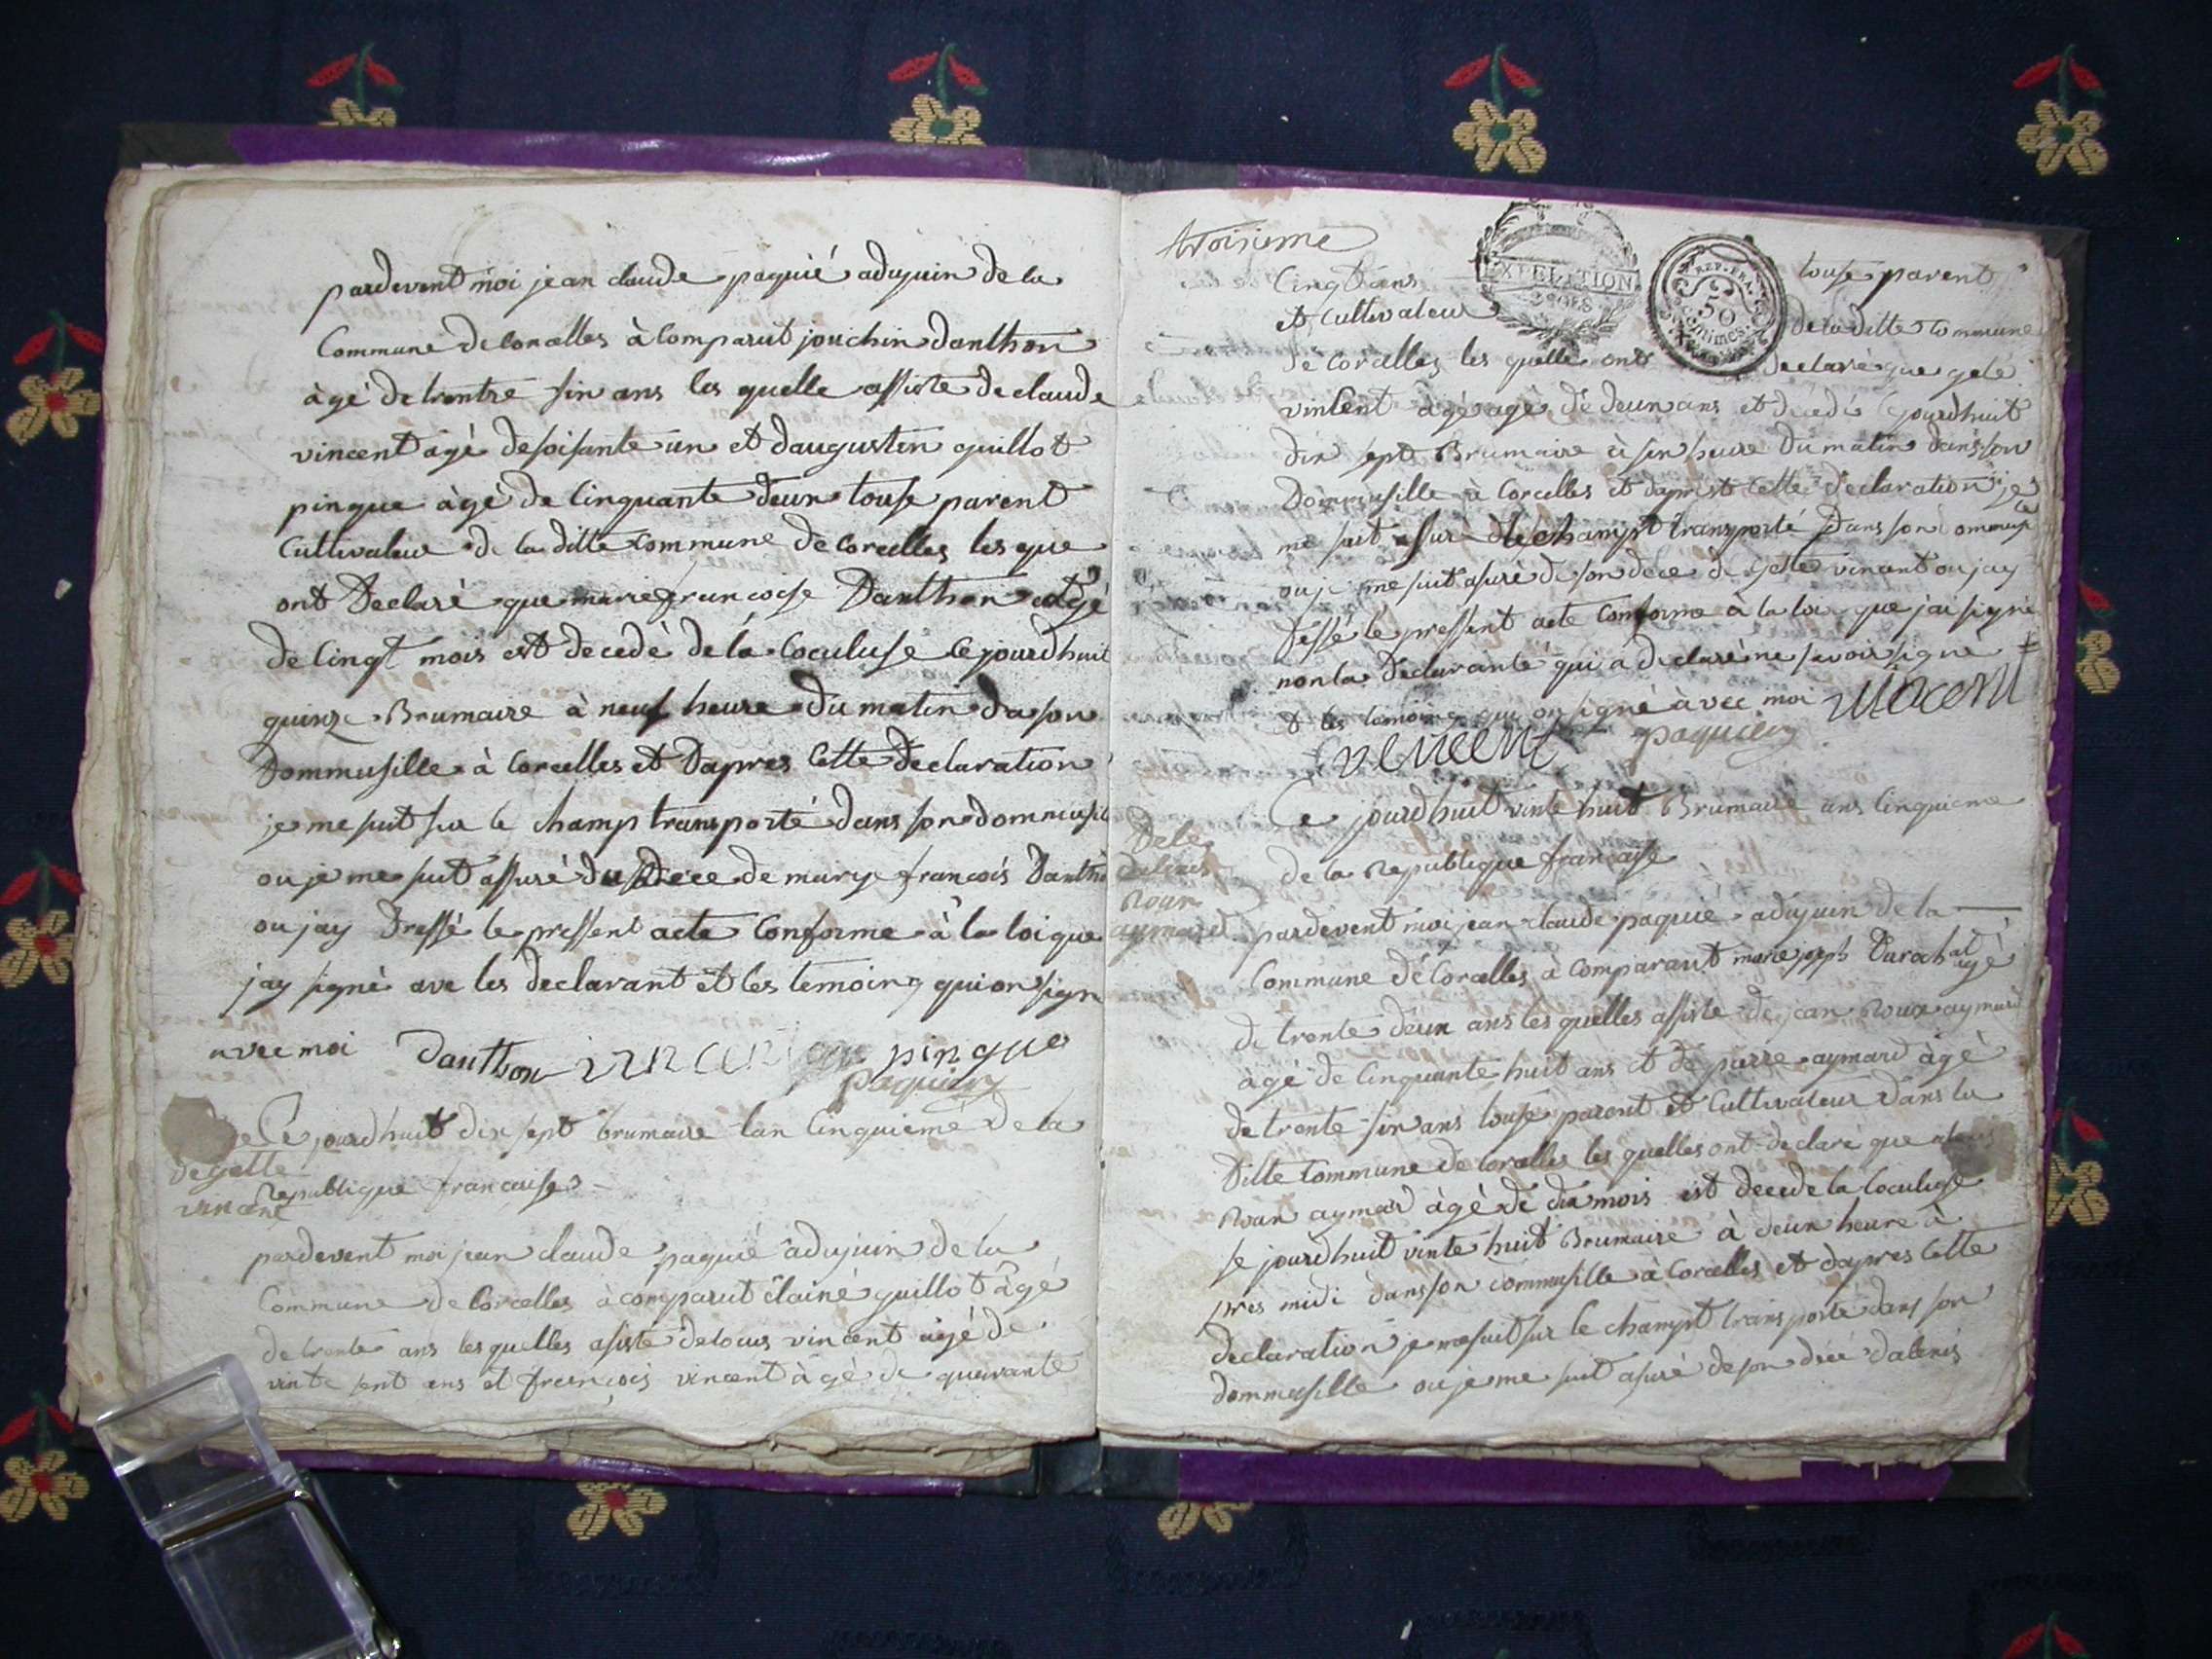 pardevent moi jean claude paquié adujuin de la
Commune de Corcelles à Comparut jouchin danthon
àgé de trentre sin ans les quelle assiste de claude
vincent àgé de soisante un et daugusten guillot
pinque àgé de Cinquante deux touse parent
Cultivateur de la ditte Commune de Corcelles les que
ont Declaré que marie francoise Danthon
de Cingt mois est decedé de la Coculuse Ce jourdhuit
quinze Brumaire à neuf heure du matin da son
Dommusille à Corcelles et Dapres Cette Declaration
je me suit sur le champ transporté dans son
ou je me suit assuré du Dece de mary francois
ou jay Dressé le pressent acte Conforme à la loi que
jay signé ave les declarant et les temoing qui on sign
avec moi danthon pinque
paquiey
Ce jourdhuit dix sept brumaire lan Cinquieme de la
De gelle
Republique francaise
vincent
pardevent moi jean claude paquié adujuin de la
Commune de Corcelles à comparut claine guillot àgé
de trente ans les quelles asiste de vincent agé de
vinte sent ans et francois vincent à gé de quarante
troisieme
EXPEDITION
REP. FRA.
50
Centimes
Cingt ans touse parent
et Cultivateur de la ditte Commune
de Corcelles les quelle ont declaré que gele
vinsent àgé agé de deux ans et decedé Cejourdhuit
dix sept Brumaire à sin heure du matin dans son
Dommusille à Corcelles et daprest Cette declaration je
me suit sur le champt transporté Dans son
ou je me suit asuré de son dece de gelle vincent ou jay
dessé le pressent acte Conforme à la loi que jai signé
non la declarante qui a declaré ne savoir signe
et les temoing qui on signé àvec moi vincent
vencent paquiey
Ce jourdhuit vinte huit Brumaire ans Cinquieme
Dele
de la Republique francaise
Roux
aymard
pardevent moi jean claude paquié adujuin de la
Commune de Corcelles à Comparant marie joseph àgé
de trente deux ans les quelles assiste de jean Roux aymard
àgé de Cinquante huit ans et de piarre aymard àgé
de trente sin ans touse parent et Cultivateur dans la
ditte Commune de Corcelles les quelles ont declaré que
Roux aymard àgé de dix mois est decede la Coculuse
se jourdhuit vinte huit Brumaire à deux heure à
pres midi dans son dommusille à Corcelles et dapres Cette
declaration je me suit sur le champt transporté dans son
dommusille ou je me suit asuré de son décé dalexis